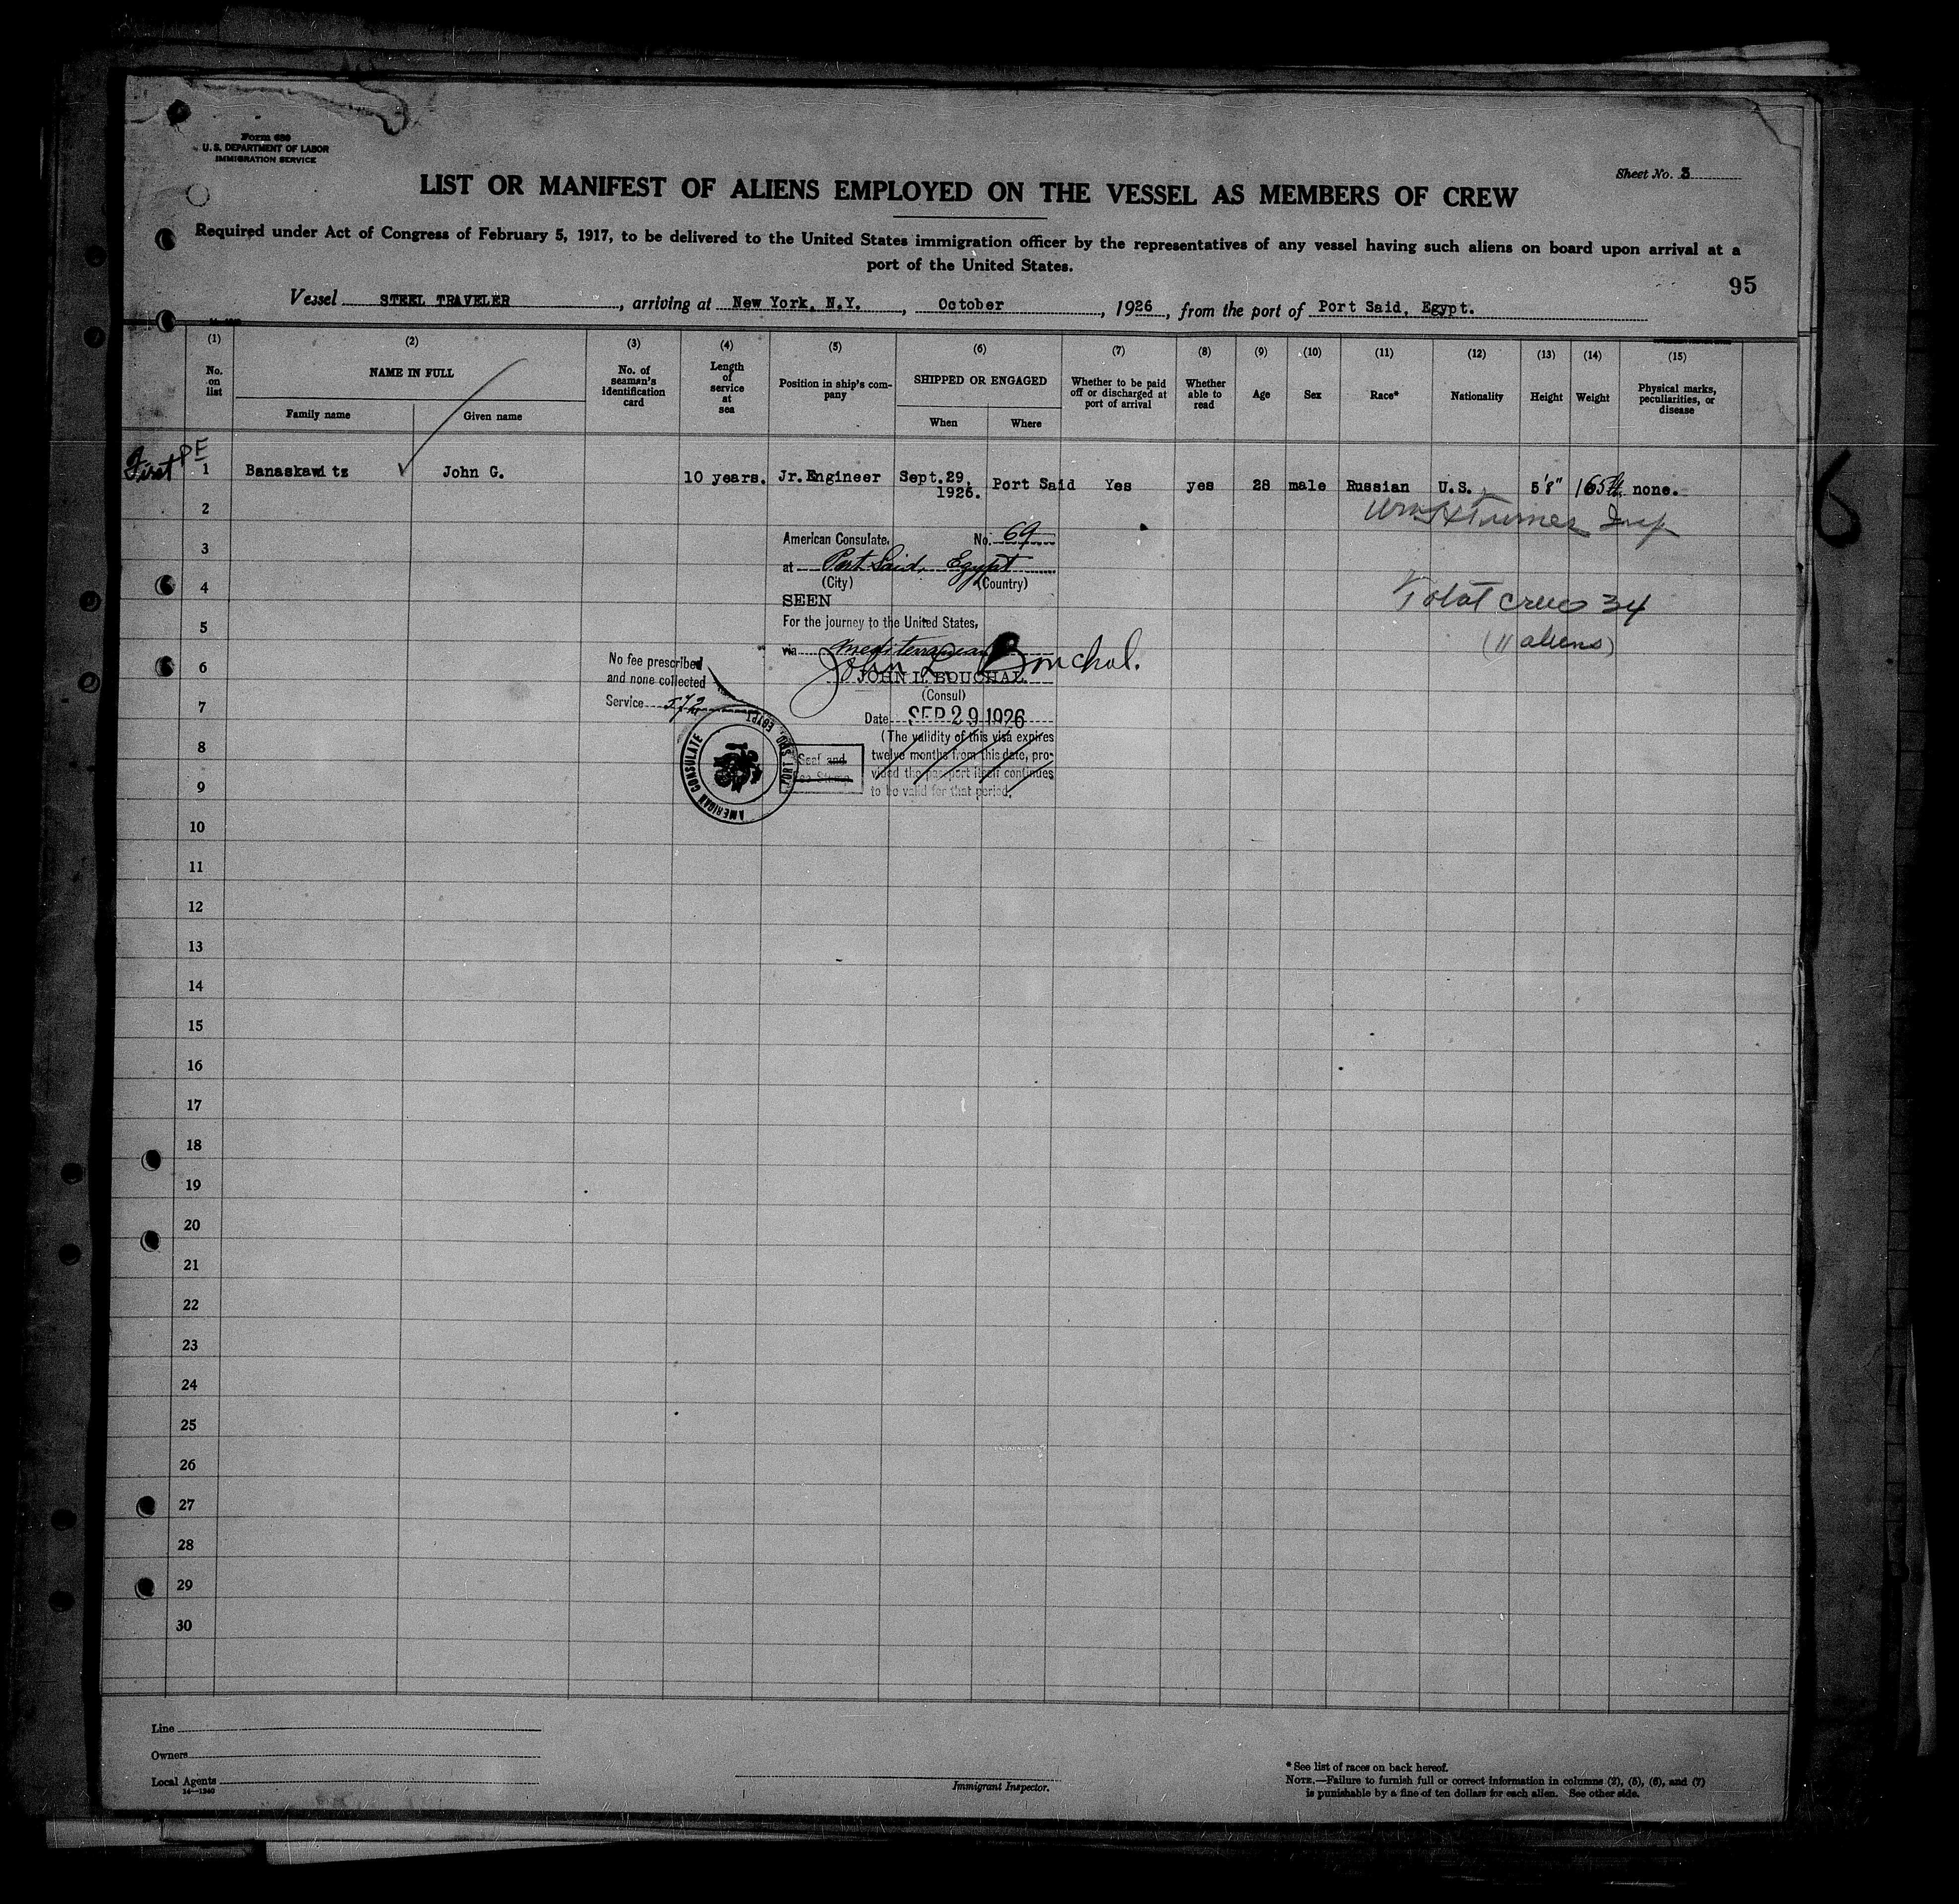 Form 680
U. S. DEPARTMENT OF LABOR
IMMIGRATION SERVICE
Sheet No. 3
LIST OR MANIFEST OF ALIENS EMPLOYED ON THE VESSEL AS MEMBERS OF CREW
Required under Act of Congress of February 5, 1917, to be delivered to the United States immigration officer by the representatives of any vessel having such aliens on board upon arrival at a
port of the United States.
95
Vessel STEEL TRAVELER, arriving at New York, N.Y., October, 1926, from the port of Port Said, Egypt.
(1) (2) (3) (4) (5) (6) (7) (8) (9) (10) (11) (12) (13) (14) (15)
No. on list
NAME IN FULL
Family name
Given name
No. of seaman's identification card
Length of service at sea
Position in ship's company
SHIPPED OR ENGAGED
When
Where
Whether to be paid off or discharged at port of arrival
Whether able to read
Age
Sex
Race*
Nationality
Height
Weight
Physical marks, peculiarities, or disease
First PE 1 Banaskawitz John G. 10 years. Jr.Engineer Sept.29, 1926. Port Said Yes yes 28 male Russian U.S. 5'8" 165 none.
6
2
Wm H Turner Insp
3
American Consulate, No. 69
at Port Said, Egypt
(City) (Country)
4
SEEN
Total crew 34
5
For the journey to the United States,
(11 aliens)
via Mediterranean
6
No fee prescribed
and none collected
John L. Bouchal.
JOHN L. BOUCHAL
(Consul)
7
Service
Date SEP 29 1926
(The validity of this visa expires
8
twelve months from this date, pro-
vided the passport itself continues
to be valid for that period.
Seal and
Fee Stamp
AMERICAN CONSULATE
PORT SAID, EGYPT
9
10
11
12
13
14
15
16
17
18
19
20
21
22
23
24
25
26
27
28
29
30
Line
Owners
Local Agents
14—1240
Immigrant Inspector.
* See list of races on back hereof.
NOTE.—Failure to furnish full or correct information in columns (2), (5), (6), and (7)
is punishable by a fine of ten dollars for each alien. See other side.